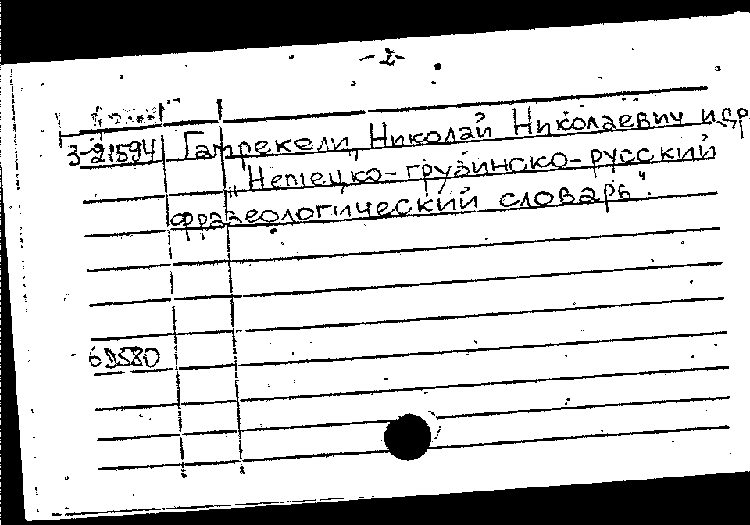 -2-
3-21594 Гамрекели, Николай Николаевич и др.
"Немецко-грузинско-русский
фразеологический словарь".
69580